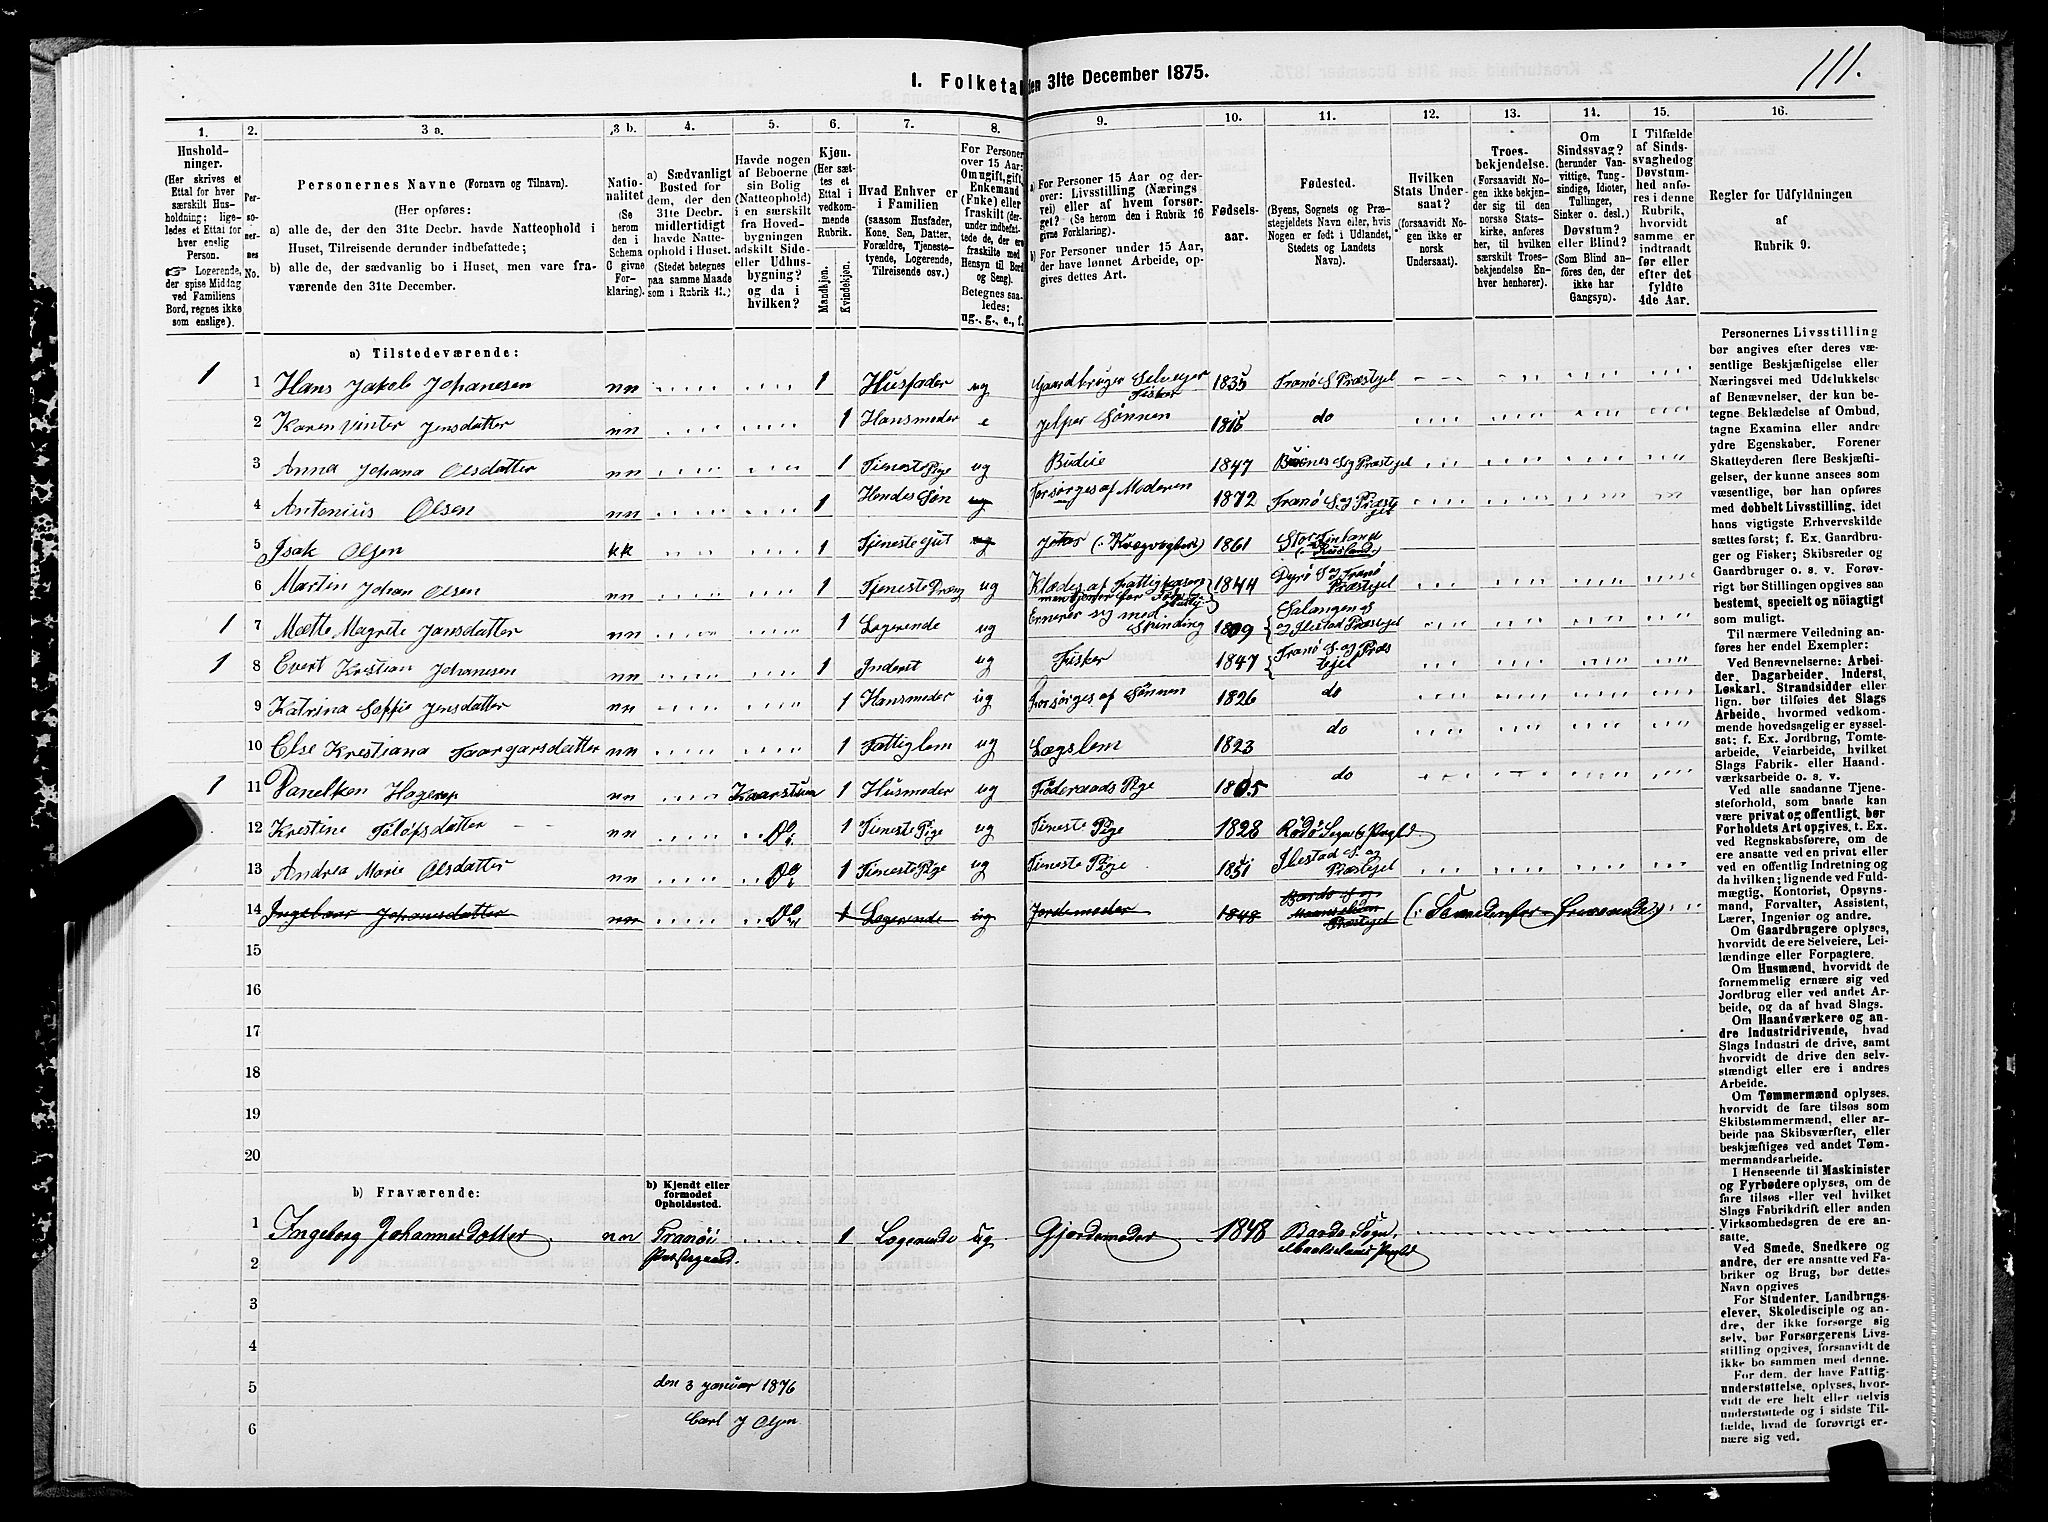 111.
I. Folketal den 31te December 1875.
1. 2. 3 a. 3 b. 4. 5. 6. 7. 8. 9. 10. 11. 12. 13. 14. 15. 16.
Hushold-
ninger.
(Her skrives et
Ettal for hver
særskilt Hus-
holdning; lige-
ledes et Ettal for
hver enslig
Person.
☞ Logerende,
der spise Middag
ved Familiens
Bord, regnes ikke
som enslige).
Per-
so-
ner-
nes
No.
Personernes Navne (Fornavn og Tilnavn).
(Her opføres:
a) alle de, der den 31te Decbr. havde Natteophold i
Huset, Tilreisende derunder indbefattede;
b) alle de, der sædvanlig bo i Huset, men vare fra-
værende den 31te December.
Natio-
nalitet
(Se
herom
den i
Schema
G givne
For-
klaring).
a) Sædvanligt
Bosted for
dem, der den
31te Decbr.
midlertidigt
havde Natte-
ophold i Huset.
(Stedet betegnes
paa samme Maade
som i Rubrik 11.)
Havde nogen
af Beboerne
sin Bolig
(Natteophold)
i en særskilt
fra Hoved-
bygningen
adskilt Side-
eller Udhus-
bygning?
og da i
hvilken?
Kjøn.
(Her sæt-
tes et
Ettal i
vedkom-
mende
Rubrik.
Mandkjøn.
Kvindekjøn.
Hvad Enhver er
i Familien
(saasom Husfader,
Kone, Søn, Datter,
Forældre, Tjeneste-
tyende, Logerende,
Tilreisende osv.)
For Personer
over 15 Aar:
Om ugift, gift,
Enkemand
(Enke) eller
fraskilt (der-
under indbefat-
tede de, der ere
fraskilte med
Hensyn til Bord
og Seng).
Betegnes saa-
ledes:
ug., g., e., f.
a) For Personer 15 Aar og der-
over: Livsstilling (Nærings-
vei) eller af hvem forsør-
get? (Se herom den i Rubrik 16
givne Forklaring).
b) For Personer under 15 Aar,
der have lønnet Arbeide, op-
gives dettes Art.
Fødsels-
aar.
Fødested.
(Byens, Sognets og Præ-
stegjeldets Navn eller, hvis
Nogen er født i Udlandet,
Stedets og Landets
Navn).
Hvilken
Stats Under-
saat?
(forsaavidt No-
gen ikke er
norsk
Undersaat).
Troes-
bekjendelse.
(Forsaavidt No-
gen ikke bekjen-
der sig til den
norske Stats-
kirke, anføres
her, til hvilken
særskilt Troes-
bekjendelse En-
hver henhører).
Om
Sindssvag?
(herunder Van-
vittige, Tung-
sindige, Idioter,
Tullinger,
Sinker o. desl.)
Døvstum?
eller Blind?
(Som Blind an-
føres den, der
ikke har
Gangsyn).
I Tilfælde
af Sinds-
svaghed og
Døvstum-
hed anfø-
res i denne
Rubrik,
hvorvidt
samme er
indtraadt
før eller
efter det
fyldte
4de Aar.
Regler for Udfyldningen
af
Rubrik 9.
a) Tilstedeværende:
1 1 Hans Jakob Johanesen nn 1 Husfader ug Gaardbruger Selveier Fisker 1835 Tranø S Præstejel
2 Karen Vinter Jensdatter nn 1 Hansmoder e Jelper Sønnen 1815 do
3 Anna Johana Olsdatter nn 1 TienestePige ug Budeie 1847 Præstejel
4 Antonius Olsen nn 1 Hendes Søn ug Forsørges af Moderen 1872 Tranø S. og Præstejel
5 Isak Olsen kk 1 Tjeneste gut ug 1861
6 Martin Johan Olsen nn 1 Tjeneste Dreng ug Klædes af 1844 Dyrø S og Tranø Præstejel
1 7 Mætte Magrete Jansdatter nn 1 Logerende ug Ernerer sig med Spinding 1809 Salangen S og Ibestad Præstejel
1 8 Evert Kristian Johanesen nn 1 Inderst ug Fisker 1847 Tranø S. og Præstejel
9 Katrina Soffie Jensdatter nn 1 Hansmoder ug Forsørges af Sønnen 1826 do
10 Else Krestiana Taargersdatter nn 1 Fattiglem ug Lægslem 1823 do
1 11 Hagerup nn Kaarstuen 1 Husmoder ug Føderaads Pige 1805 do
12 Krestine Toløfsdatter nn Do 1 TienestePige ug Tieneste Pige 1828 Rødø Sogn & Prgjld
13 Andrea Marie Olsdatter nn Do 1 TienestePige ug Tieneste Pige 1851 Ibestad S. og Præstejel
14 Ingebaar Johansdatter nn Do 1 Logerende ug Jordemoder 1848 Bardo S og Præstejel
15
16
17
18
19
20
b) Fraværende:
b) Kjendt eller
formodet
Opholdssted.
1 Ingeborg Johannesdatter nn Tranøi Præstegaard. 1 Logerende ug Gjordemoder 1848 Bardo Sogn, Maalselvens Prgjld
2
3
4
5
6
den 3 januar 1876
Carl J Olsen
Personernes Livsstilling
bør angives efter deres væ-
sentlige Beskjæftigelse eller
Næringsvei med Udelukkelse
af Benævnelser, der kun be-
tegne Beklædelse af Ombud,
tagne Examina eller andre
ydre Egenskaber. Forener
Skatteyderen flere Beskjæfti-
gelser, der kunne ansees som
væsentlige, bør han opføres
med dobbelt Livsstilling, idet
hans vigtigste Erhvervskilde
sættes først; f. Ex. Gaardbru-
ger og Fisker; Skibsreder og
Gaardbruger o. s. v. Forøv-
rigt bør Stillingen opgives saa
bestemt, specielt og nöiagtigt
som muligt.
Til nærmere Veiledning an-
føres her endel Exempler:
Ved Benævnelserne: Arbei-
der, Dagarbeider, Inderst,
Løskarl, Strandsidder eller
lign. bør tilføies det Slags
Arbeide, hvormed vedkom-
mende hovedsagelig er syssel-
sat; f. Ex. Jordbrug, Tomte-
arbeide, Veiarbeide, hvilket
Slags Fabrik- eller Haand-
værksarbeide o. s. v.
Ved alle saadanne Tjene-
steforhold, som baade kan
være privat og offentligt, bør
Forholdets Art opgives, t. Ex.
ved Regnskabsførere, om de
ere ansatte ved en privat eller
ved en offentlig Indretning og
da hvilken; lignende ved Fuld-
mægtig, Kontorist, Opsyns-
mand, Forvalter, Assistent,
Lærer, Ingeniør og andre.
Om Gaardbrugere oplyses,
hvorvidt de ere Selveiere, Lei-
lændinge eller Forpagtere.
Om Husmænd, hvorvidt de
fornemmelig ernære sig ved
Jordbrug eller ved andet Ar-
beide, og da af hvad Slags.
Om Haandværkere og an-
dre Industridrivende, hvad
Slags Industri de drive, samt
hvorvidt de drive den selv-
stændigt eller ere i andres
Arbeide.
Om Tømmermænd oplyses,
hvorvidt de fare tilsøs som
Skibstømmermænd, eller ar-
beide paa Skibsværfter, eller
beskjæftiges ved andet Tøm-
mermandsarbeide.
I Henseende til Maskinister
og Fyrbødere oplyses, om de
fare tilsøs eller ved hvilket
Slags Fabrikdrift eller anden
Virksomhedsgren de ere an-
satte.
Ved Smede, Snedkere og
andre, der ere ansatte ved Fa-
briker og Brug, bør dettes
Navn opgives
For Studenter, Landbrugs-
elever, Skoledisciple og an-
dre, der ikke forsørge sig
selv, bør Forsørgerens Livs-
stilling opgives, forsaavidt de
ikke bo sammen med denne.
For dem, der have Fattig-
understøttelse, oplyses, hvor-
vidt de ere helt eller delvis
understøttede og i sidste Til-
fælde, hvad de forøvrigt er-
nære sig ved.